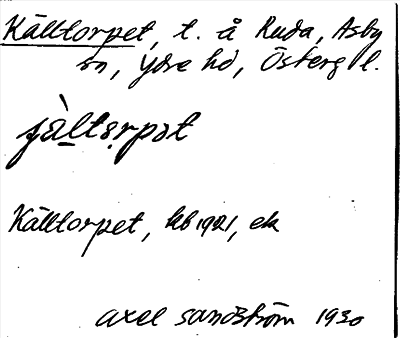 Källtorpet, t. å Ruda, Asby
sn, Ydre hd, Österg l.
jὰltɷrpət
Källtorpet, kb 1921, ek
axel sandström 1930